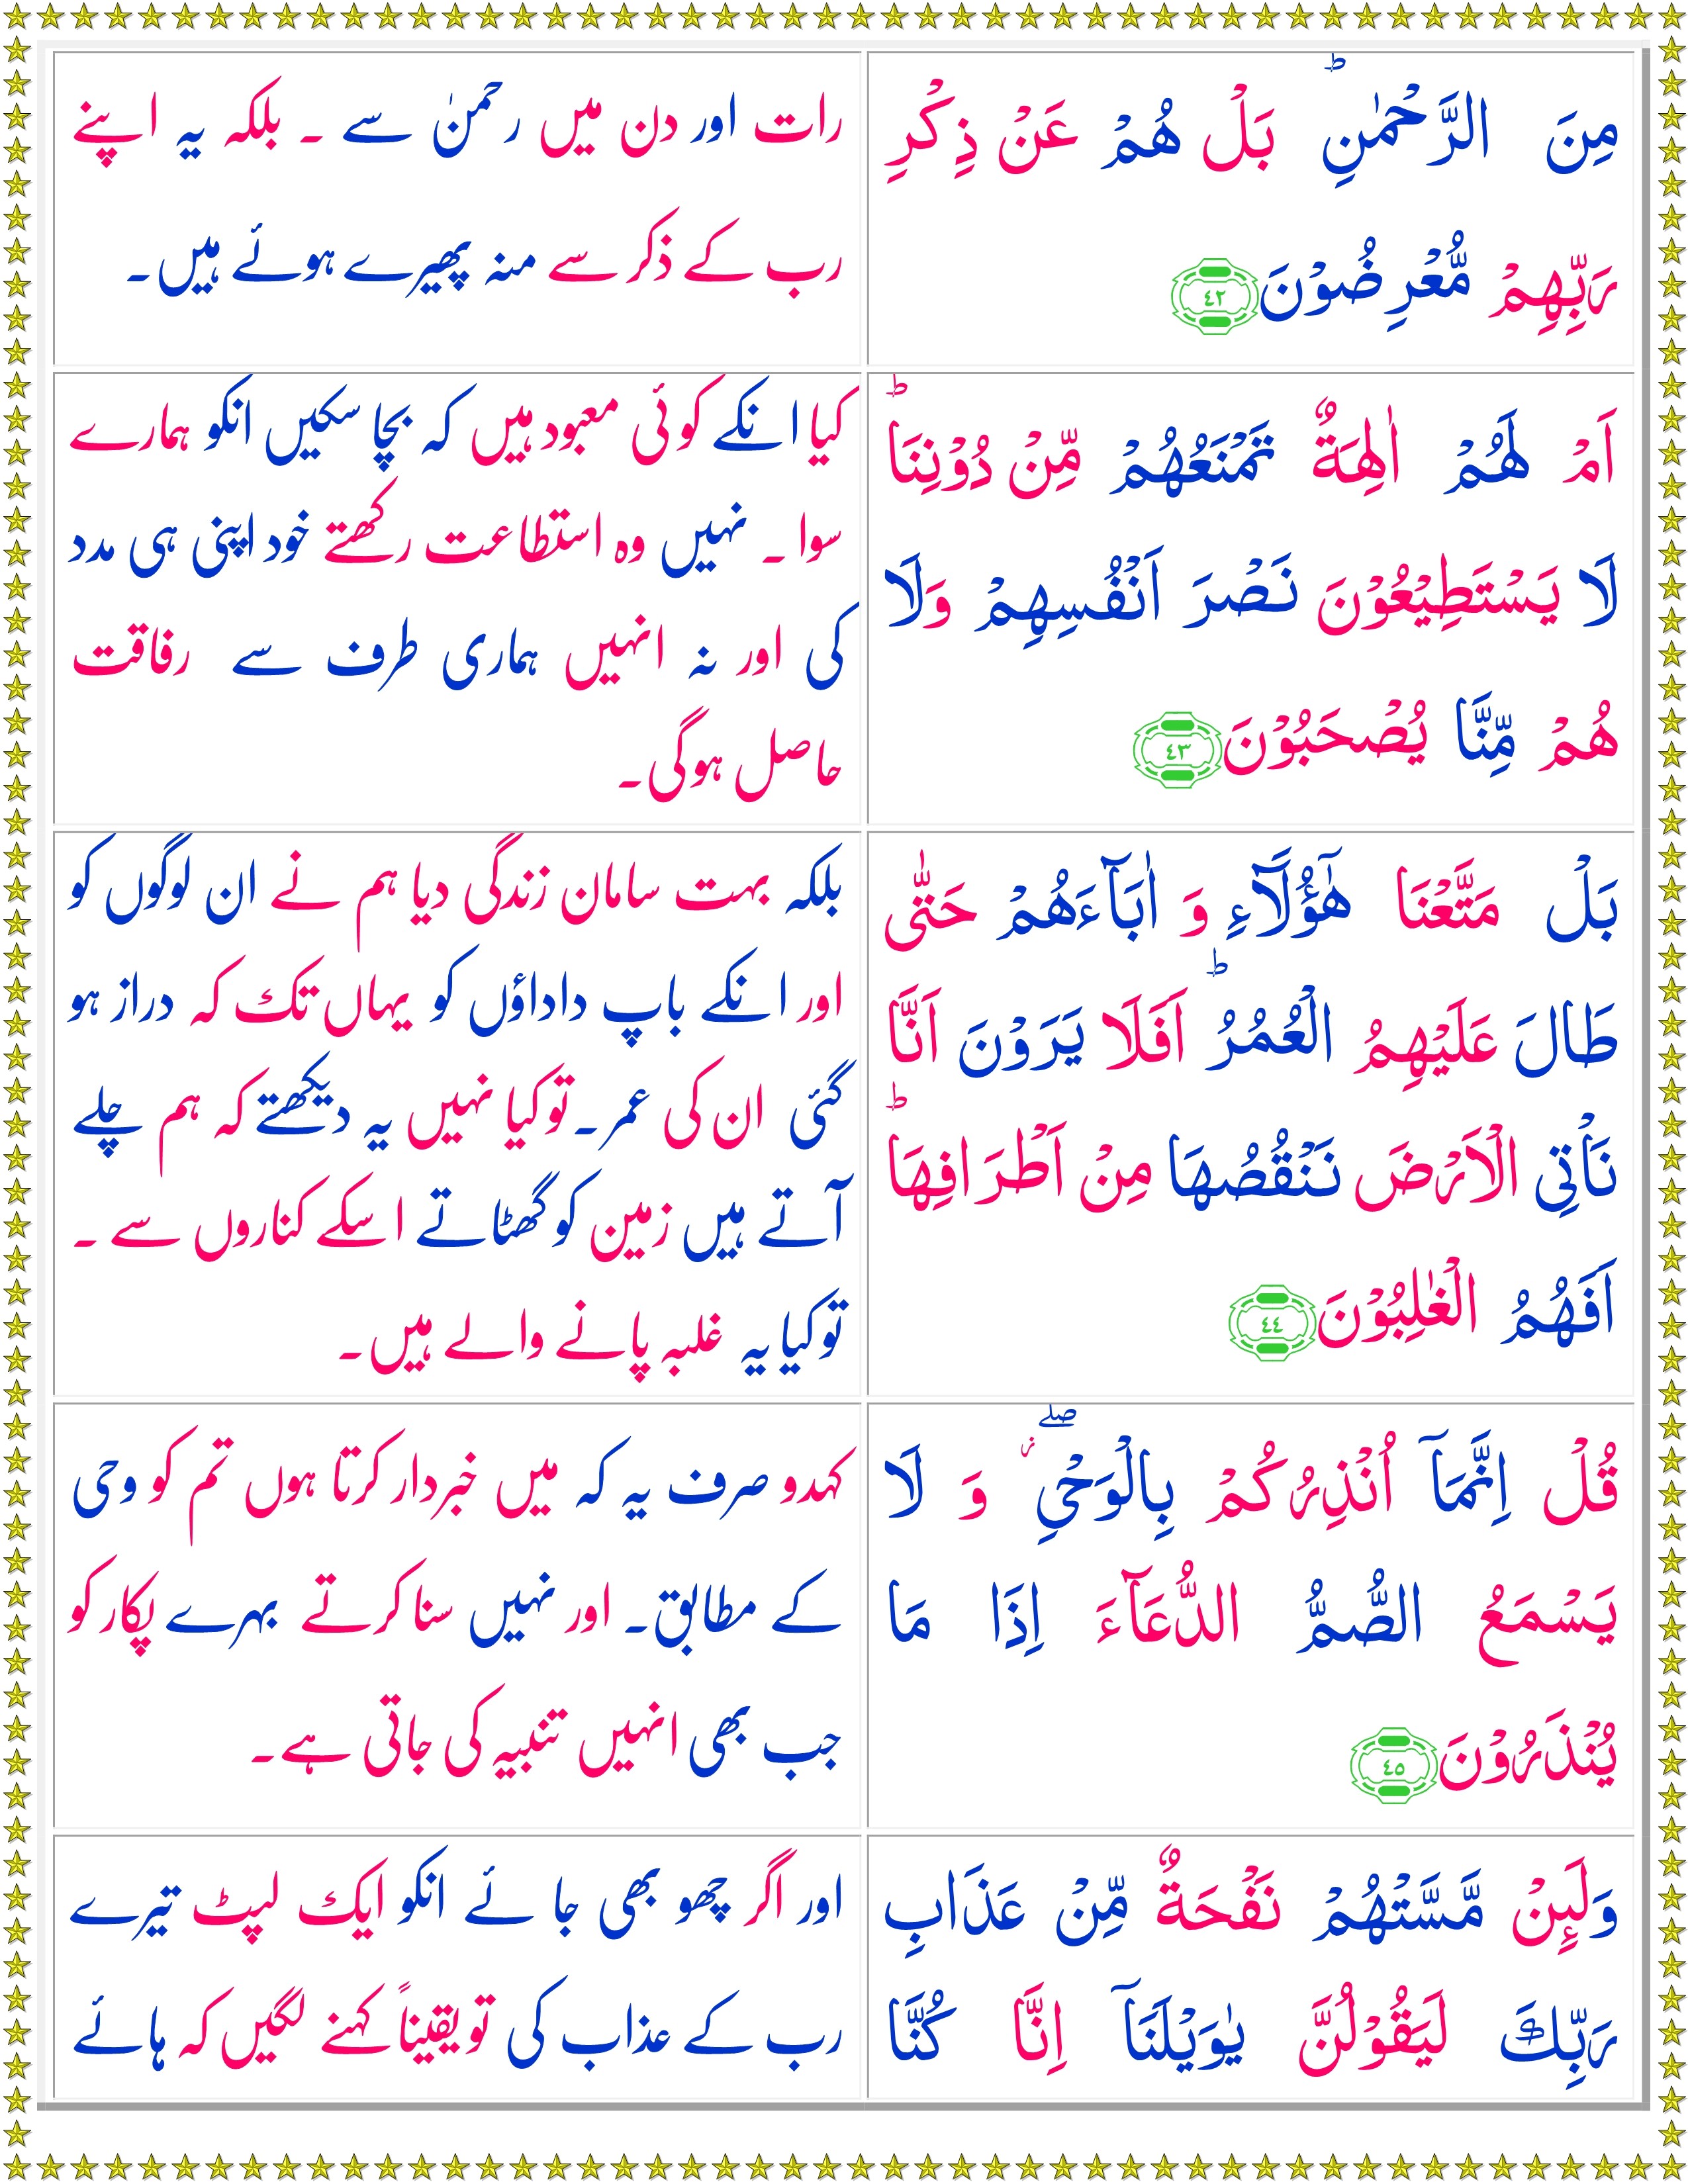 مِنَ الرَّحْمٰنِ ؕ بَلْ هُمْ عَنْ ذِكْرِ
رَبِّهِمْ مُّعْرِضُوْنَ ﴿٤٢﴾
رات اور دن میں رحمنٰ سے ۔ بلکہ یہ اپنے
رب کے ذکر سے منہ پھیرے ہوئے ہیں۔
اَمْ لَهُمْ اٰلِهَةٌ تَمْنَعُهُمْ مِّنْ دُوْنِنَا ؕ
لَا يَسْتَطِيْعُوْنَ نَصْرَ اَنْفُسِهِمْ وَلَا
هُمْ مِّنَّا يُصْحَبُوْنَ ﴿٤٣﴾
کیا انکے کوئی معبود ہیں کہ بچا سکیں انکو ہمارے
سوا ۔ نہیں وہ استطاعت رکھتے خود اپنی ہی مدد
کی اور نہ انہیں ہماری طرف سے رفاقت
حاصل ہوگی۔
بَلْ مَتَّعْنَا هٰٓؤُلَآءِ وَ اٰبَآءَهُمْ حَتّٰى
طَالَ عَلَيْهِمُ الْعُمُرُ ؕ اَفَلَا يَرَوْنَ اَنَّا
نَاْتِى الْاَرْضَ نَنْقُصُهَا مِنْ اَطْرَافِهَا ؕ
اَفَهُمُ الْغٰلِبُوْنَ ﴿٤٤﴾
بلکہ بہت سامان زندگی دیا ہم نے ان لوگوں کو
اور انکے باپ داداؤں کو یہاں تک کہ دراز ہو
گئی ان کی عمر۔ تو کیا نہیں یہ دیکھتے کہ ہم چلے
آتے ہیں زمین کو گھٹاتے اسکے کناروں سے ۔
تو کیا یہ غلبہ پانے والے ہیں۔
قُلْ اِنَّمَآ اُنْذِرُكُمْ بِالْوَحْىِ ۖ ز وَ لَا
يَسْمَعُ الصُّمُّ الدُّعَآءَ اِذَا مَا
يُنْذَرُوْنَ ﴿٤٥﴾
کہدو صرف یہ کہ میں خبردار کرتا ہوں تم کو وحی
کے مطابق۔ اور نہیں سنا کرتے بہرے پکار کو
جب بھی انہیں تنبیہ کی جاتی ہے۔
وَلَٮِٕنْ مَّسَّتْهُمْ نَفْحَةٌ مِّنْ عَذَابِ
رَبِّكَ لَيَقُوْلُنَّ يٰوَيْلَنَآ اِنَّا كُنَّا
اور اگر چھو بھی جائے انکو ایک لپٹ تیرے
رب کے عذاب کی تو یقیناً کہنے لگیں کہ ہائے